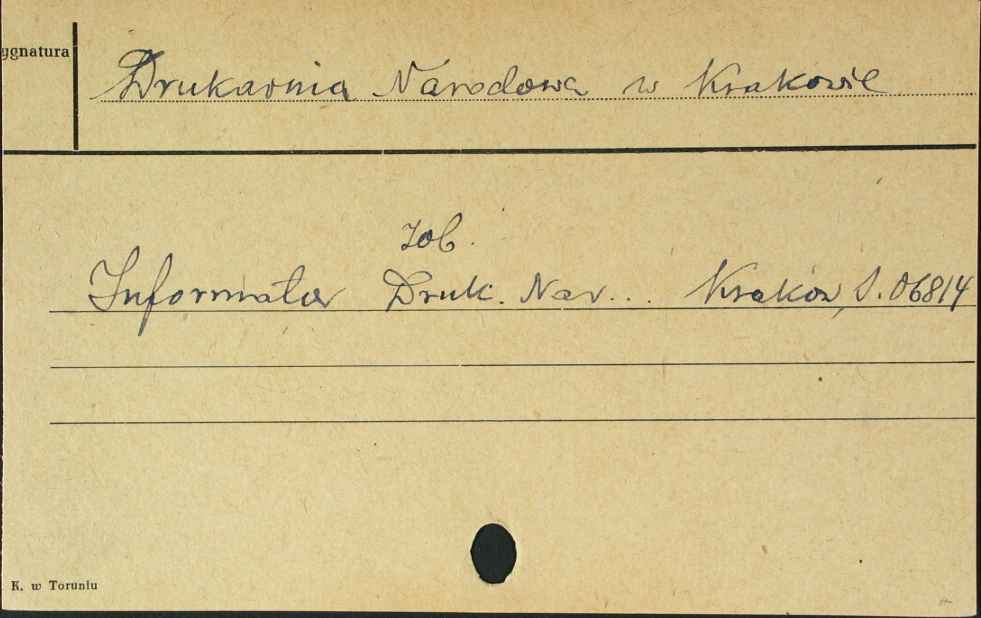 ygnatura
Drukarnia Narodowa w Krakowie
zob.
Informator Druk. Nar... Kraków, S. 06814
K. w Toruniu